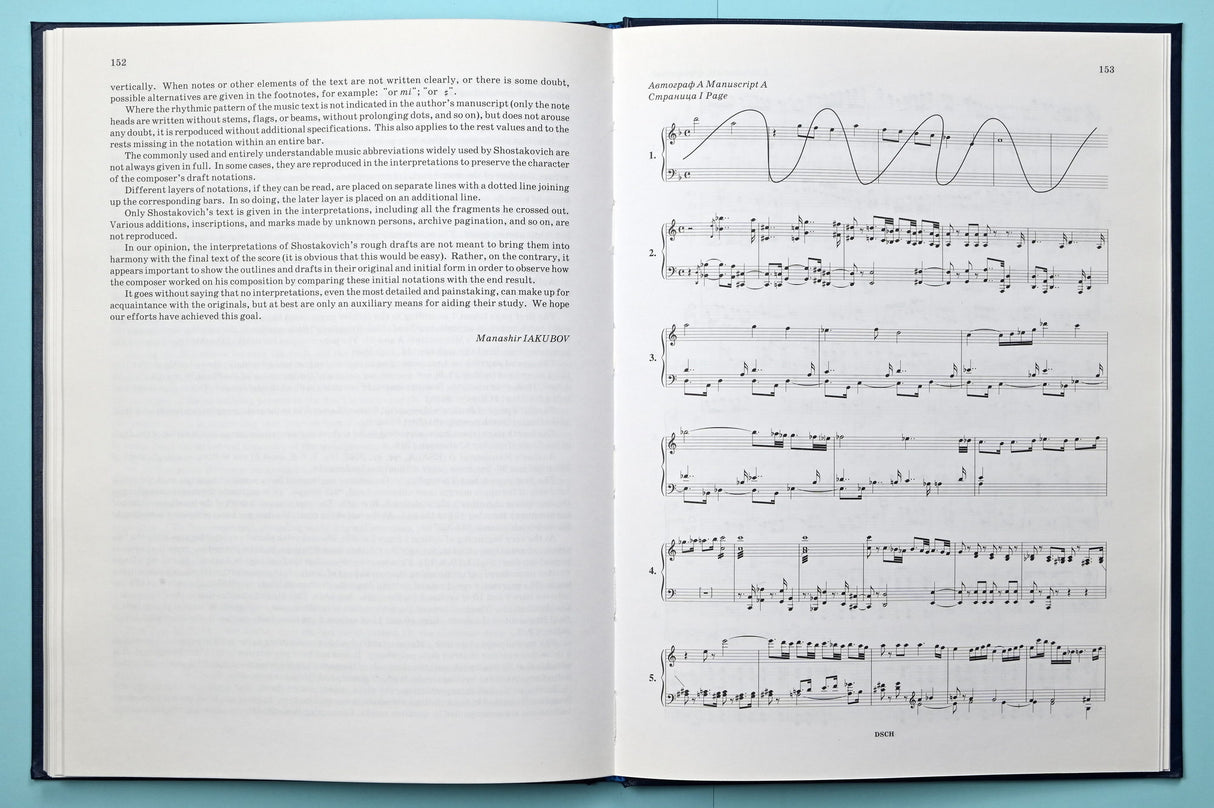 152
vertically. When notes or other elements of the text are not written clearly, or there is some doubt,
possible alternatives are given in the footnotes, for example: "or mi"; "or ♮".
Where the rhythmic pattern of the music text is not indicated in the author's manuscript (only the note
heads are written without stems, flags, or beams, without prolonging dots, and so on), but does not arouse
any doubt, it is rerpoduced without additional specifications. This also applies to the rest values and to the
rests missing in the notation within an entire bar.
The commonly used and entirely understandable music abbreviations widely used by Shostakovich are
not always given in full. In some cases, they are reproduced in the interpretations to preserve the character
of the composer's draft notations.
Different layers of notations, if they can be read, are placed on separate lines with a dotted line joining
up the corresponding bars. In so doing, the later layer is placed on an additional line.
Only Shostakovich's text is given in the interpretations, including all the fragments he crossed out.
Various additions, inscriptions, and marks made by unknown persons, archive pagination, and so on, are
not reproduced.
In our opinion, the interpretations of Shostakovich's rough drafts are not meant to bring them into
harmony with the final text of the score (it is obvious that this would be easy). Rather, on the contrary, it
appears important to show the outlines and drafts in their original and initial form in order to observe how
the composer worked on his composition by comparing these initial notations with the end result.
It goes without saying that no interpretations, even the most detailed and painstaking, can make up for
acquaintance with the originals, but at best are only an auxiliary means for aiding their study. We hope
our efforts have achieved this goal.
Manashir IAKUBOV
153
Автограф А Manuscript A
Страница I Page
1.
2.
3.
4.
5.
DSCH